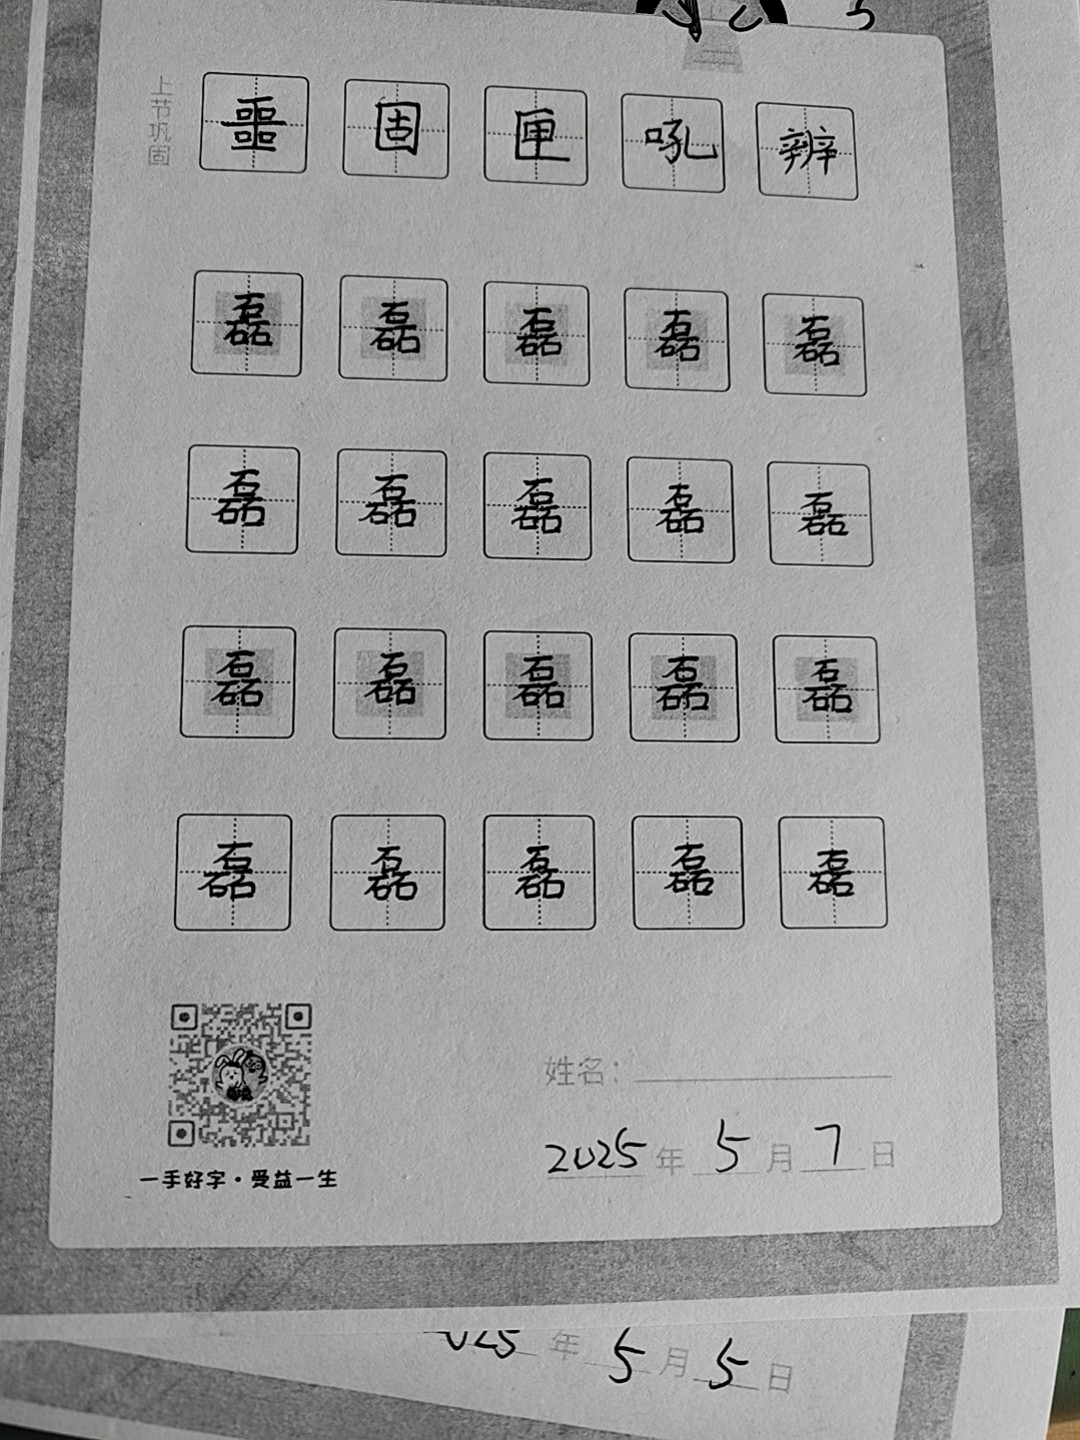 上节巩固
噩 固 匣 吼 辨
磊 磊 磊 磊 磊
磊 磊 磊 磊 磊
磊 磊 磊 磊 磊
磊 磊 磊 磊 磊
姓名：
2025 年 5 月 7 日
一手好字·受益一生
025 年 5 月 5 日